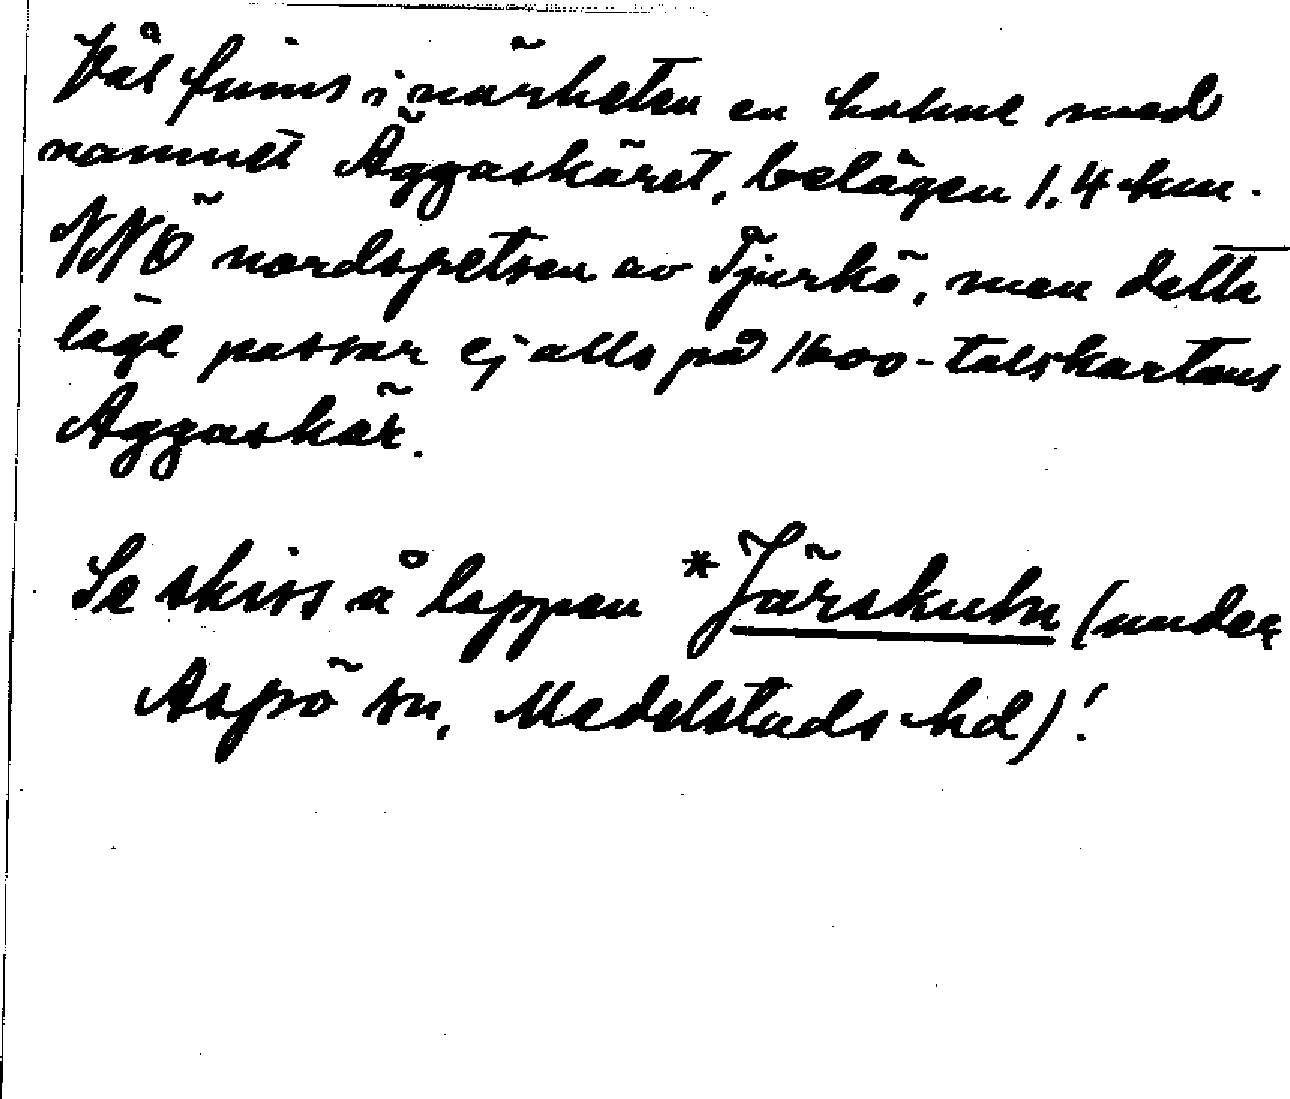 Väl finns i närheten en holme med
namnet Äggaskäret, belägen 1,4 km.
NNÖ nordspetsen av Tjurkö, men detta
läge passar ej alls på 1600-talskartans
Äggaskär.
Se skiss å lappen *Järskubn (under
Aspö sn, Medelstads hd)!